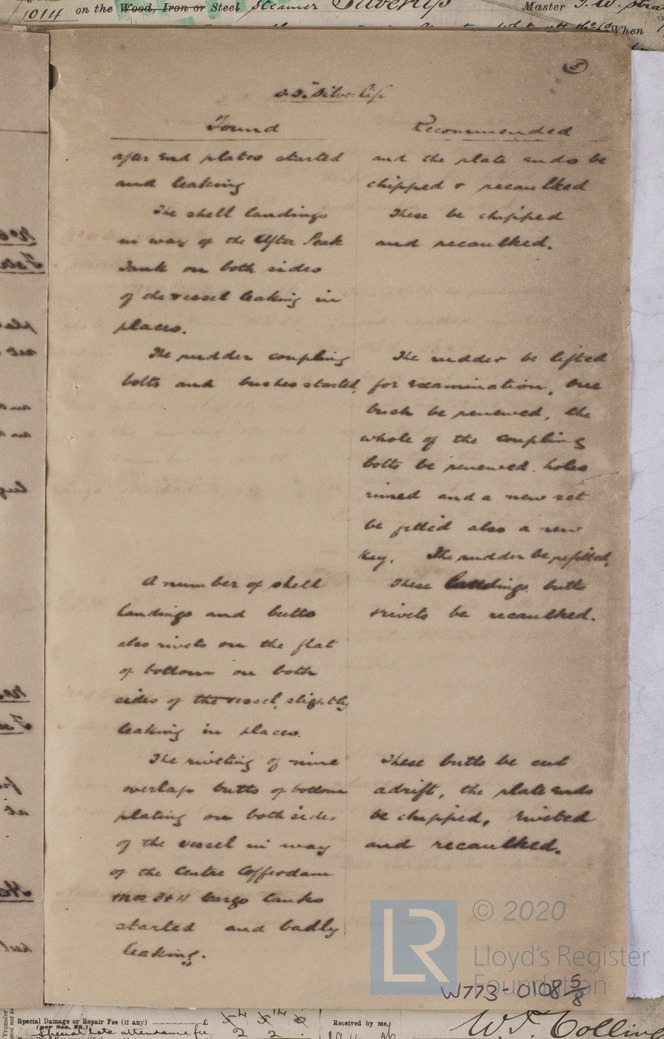 1014 on the Wood, Iron or Steel Steamer Silverlip Master J. W.
When
5
S.S. Silverlip
Found
after end plates started
and leaking
The shell landings
in way of the After Peak
Tank on both sides
of the vessel leaking in
places.
The rudder coupling
bolts and bushes started,
A number of shell
landings and butts
also rivets on the flat
of bottom on both
sides of the vessel, slightly
leaking in places.
The riveting of nine
overlap butts of bottom
plating on both sides
of the vessel in way
of the Centre Cofferdam
cargo tanks
started and badly
leaking.
Recommended
and the plate ends be
chipped & recaulked
These be chipped
and recaulked.
The rudder be lifted
for examination, one
bush be renewed, the
whole of the coupling
bolts be renewed, holes
rimed and a new set
be fitted also a new
key. The rudder be refitted,
These landings, butts
& rivets be recaulked.
These butts be cut
adrift, the plate ends
be chipped, riveted
and recaulked.
LR
© 2020
Lloyd's Register
Foundation
W773-0108 5/8
Special Damage or Repair Fee (if any) £
(per Sec. 28.)
Special late attendance fee 2 2
Received by me,